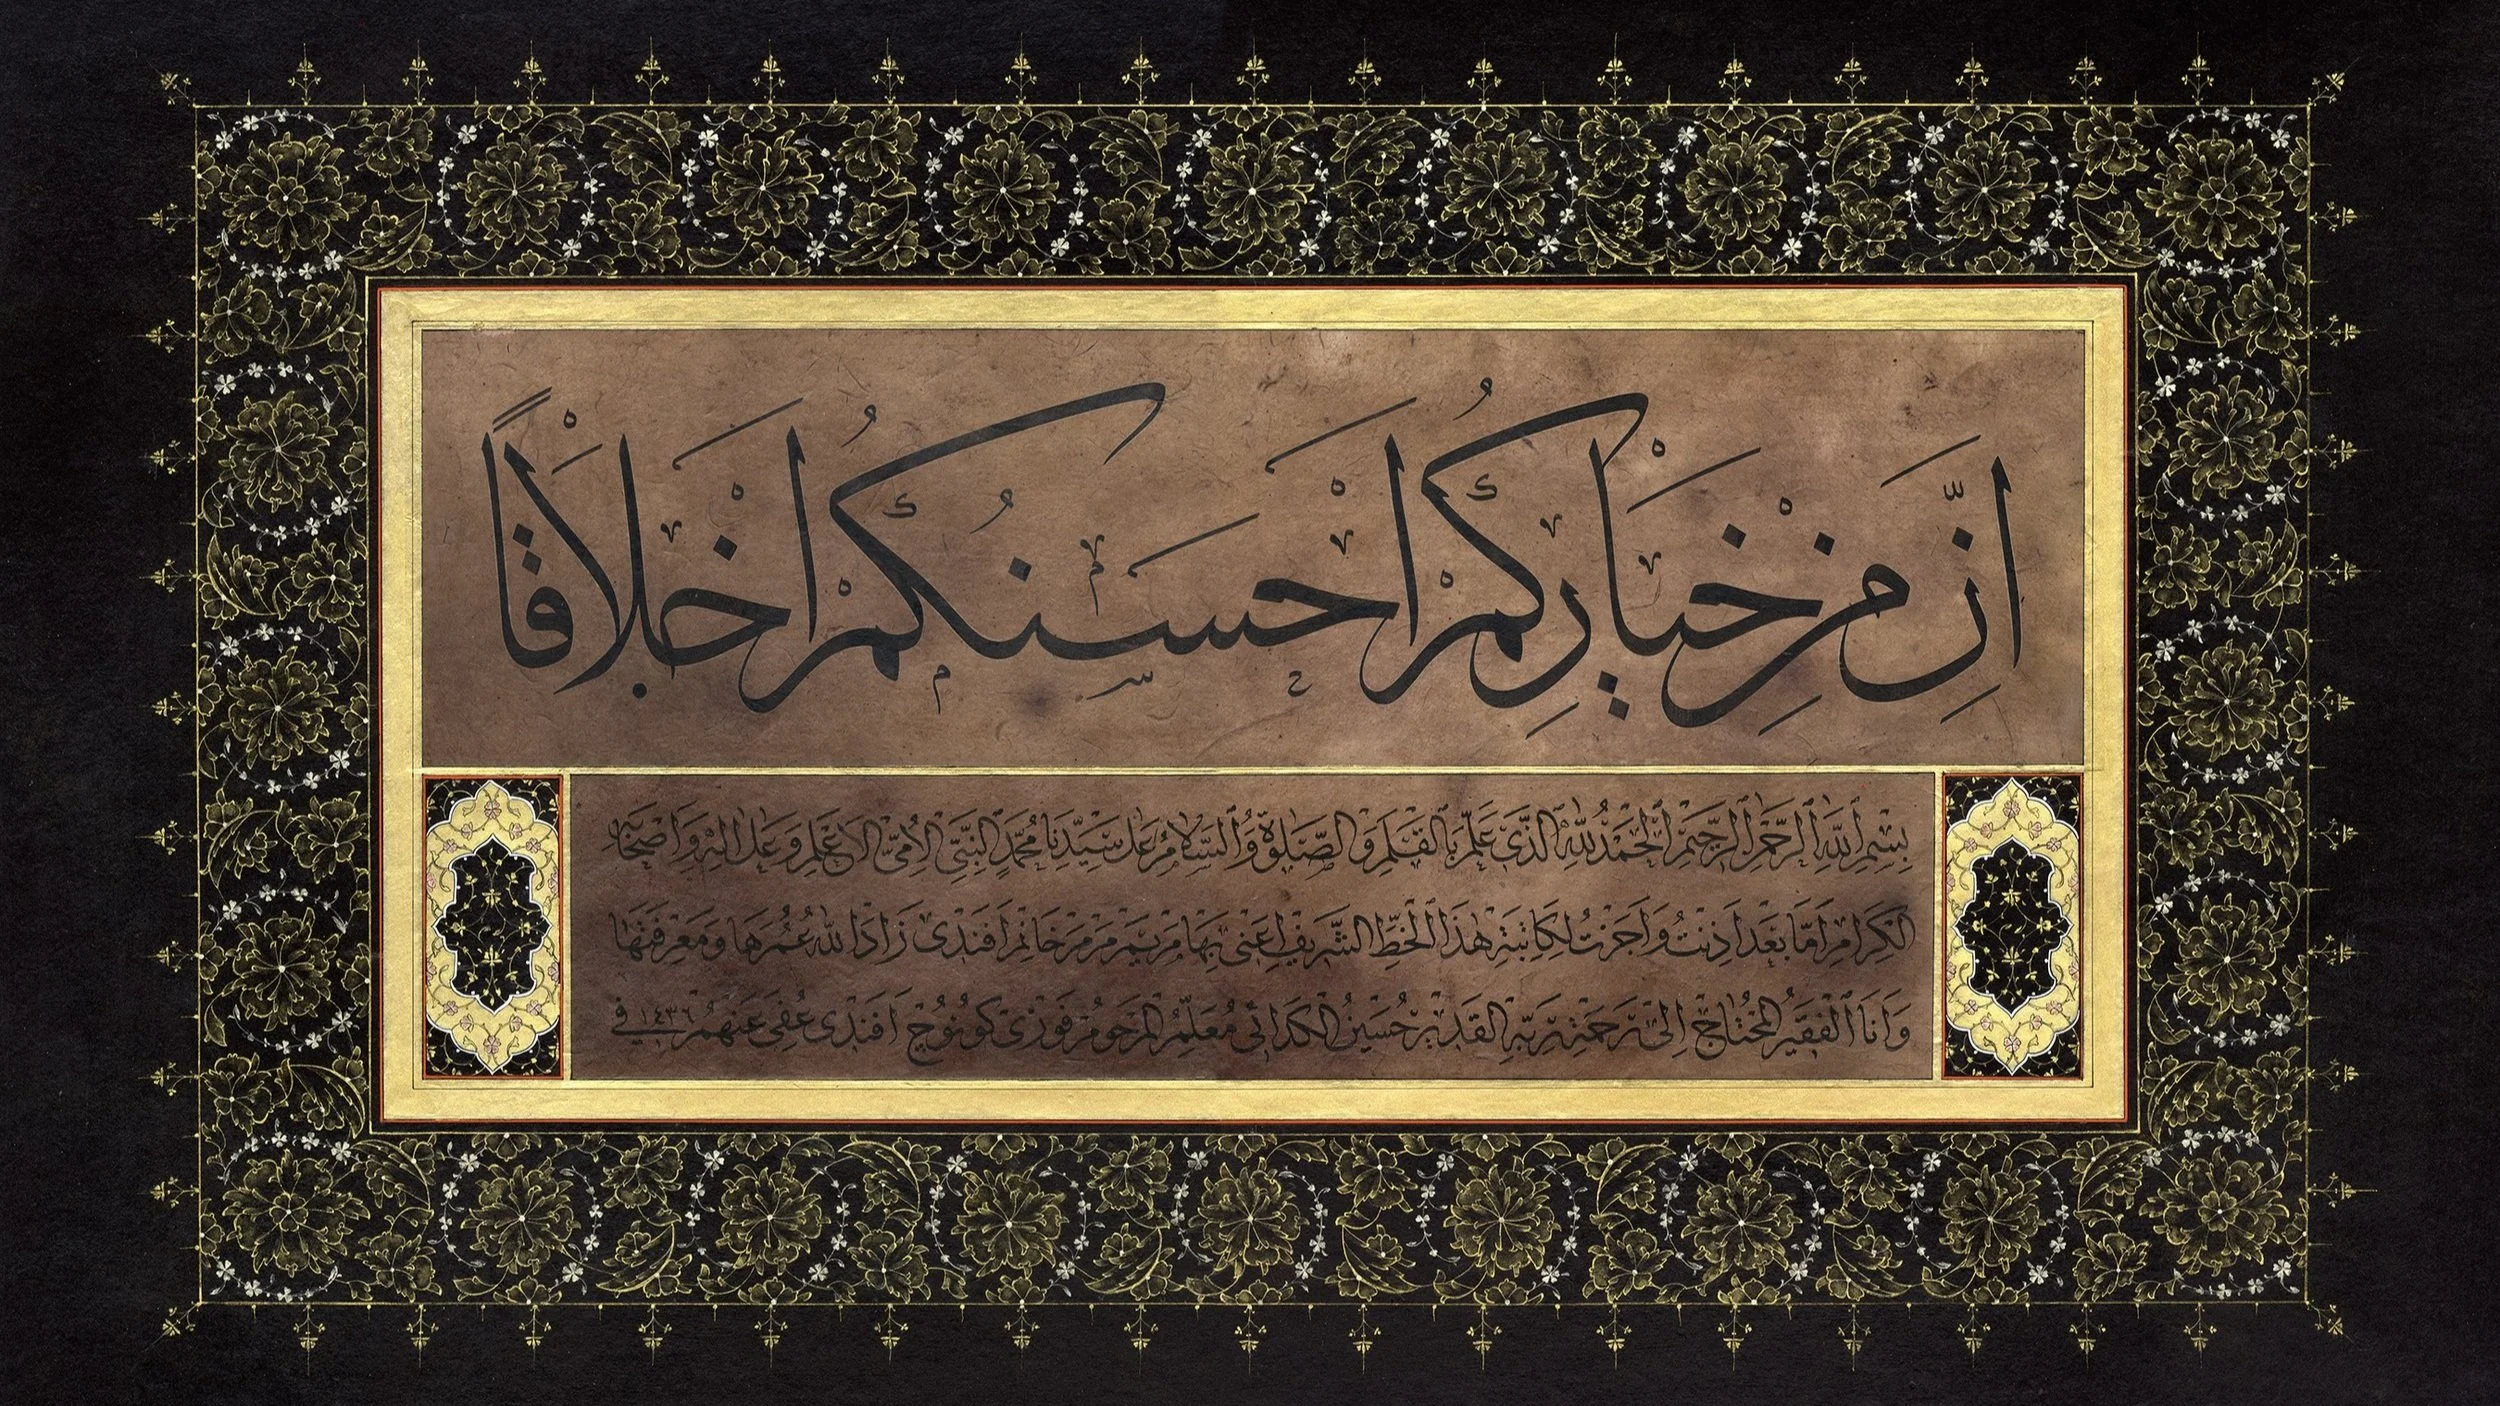 اِنَّ مِنْ خِيَارِكُمْ اَحْسَنُكُمْ اَخْلَاقًا
بِسْمِ اللهِ الرَّحْمٰنِ الرَّحِيمِ الْحَمْدُ لِلّٰهِ الَّذِى عَلَّمَ بِالْقَلَمِ وَالصَّلٰوةُ وَالسَّلَامُ عَلٰى سَيِّدِنَا مُحَمَّدٍ النَّبِىِّ الْاُمِّىِّ الْاَعْلَمِ وَعَلٰى اٰلِهِ وَاَصْحَابِهِ
الْكِرَامِ اَمَّا بَعْدُ اَذِنْتُ وَاَجَزْتُ لِكَاتِبَةِ هٰذَا الْخَطِّ الشَّرِيفِ اَعْنِى بِهَا مَرْيَمْ مَرْمَرْ خَانِمْ اَفَنْدِى زَادَ اللهُ عُمُرَهَا وَمَعْرِفَتَهَا
وَاَنَا الْفَقِيرُ الْمُحْتَاجُ اِلٰى رَحْمَةِ رَبِّهِ الْقَدِيرِ حُسَيْنُ مُعَلِّمُ الْمَرْحُومِ فَوْزِى كُونُوچْ اَفَنْدِى عُفِىَ عَنْهُمْ فِى ١٤٣٦